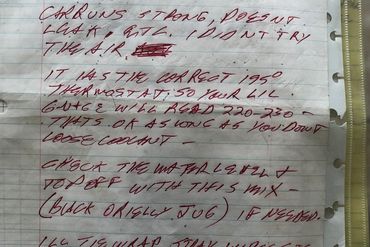 CAR RUNS STRONG, DOESNT
LEAK, ETC. I DIDN'T TRY
THE AIR.
IT HAS THE CORRECT 195°
THERMOSTAT, SO YOUR LIL
GAUGE WILL READ 220-230 -
THATS OK AS LONG AS YOU DONT
LOOSE COOLANT -
CHECK THE WATER LEVEL &
TOP OFF WITH THIS MIX -
(BLACK ORIELLY JUG) IF NEEDED.
I'LL TIE WRAP